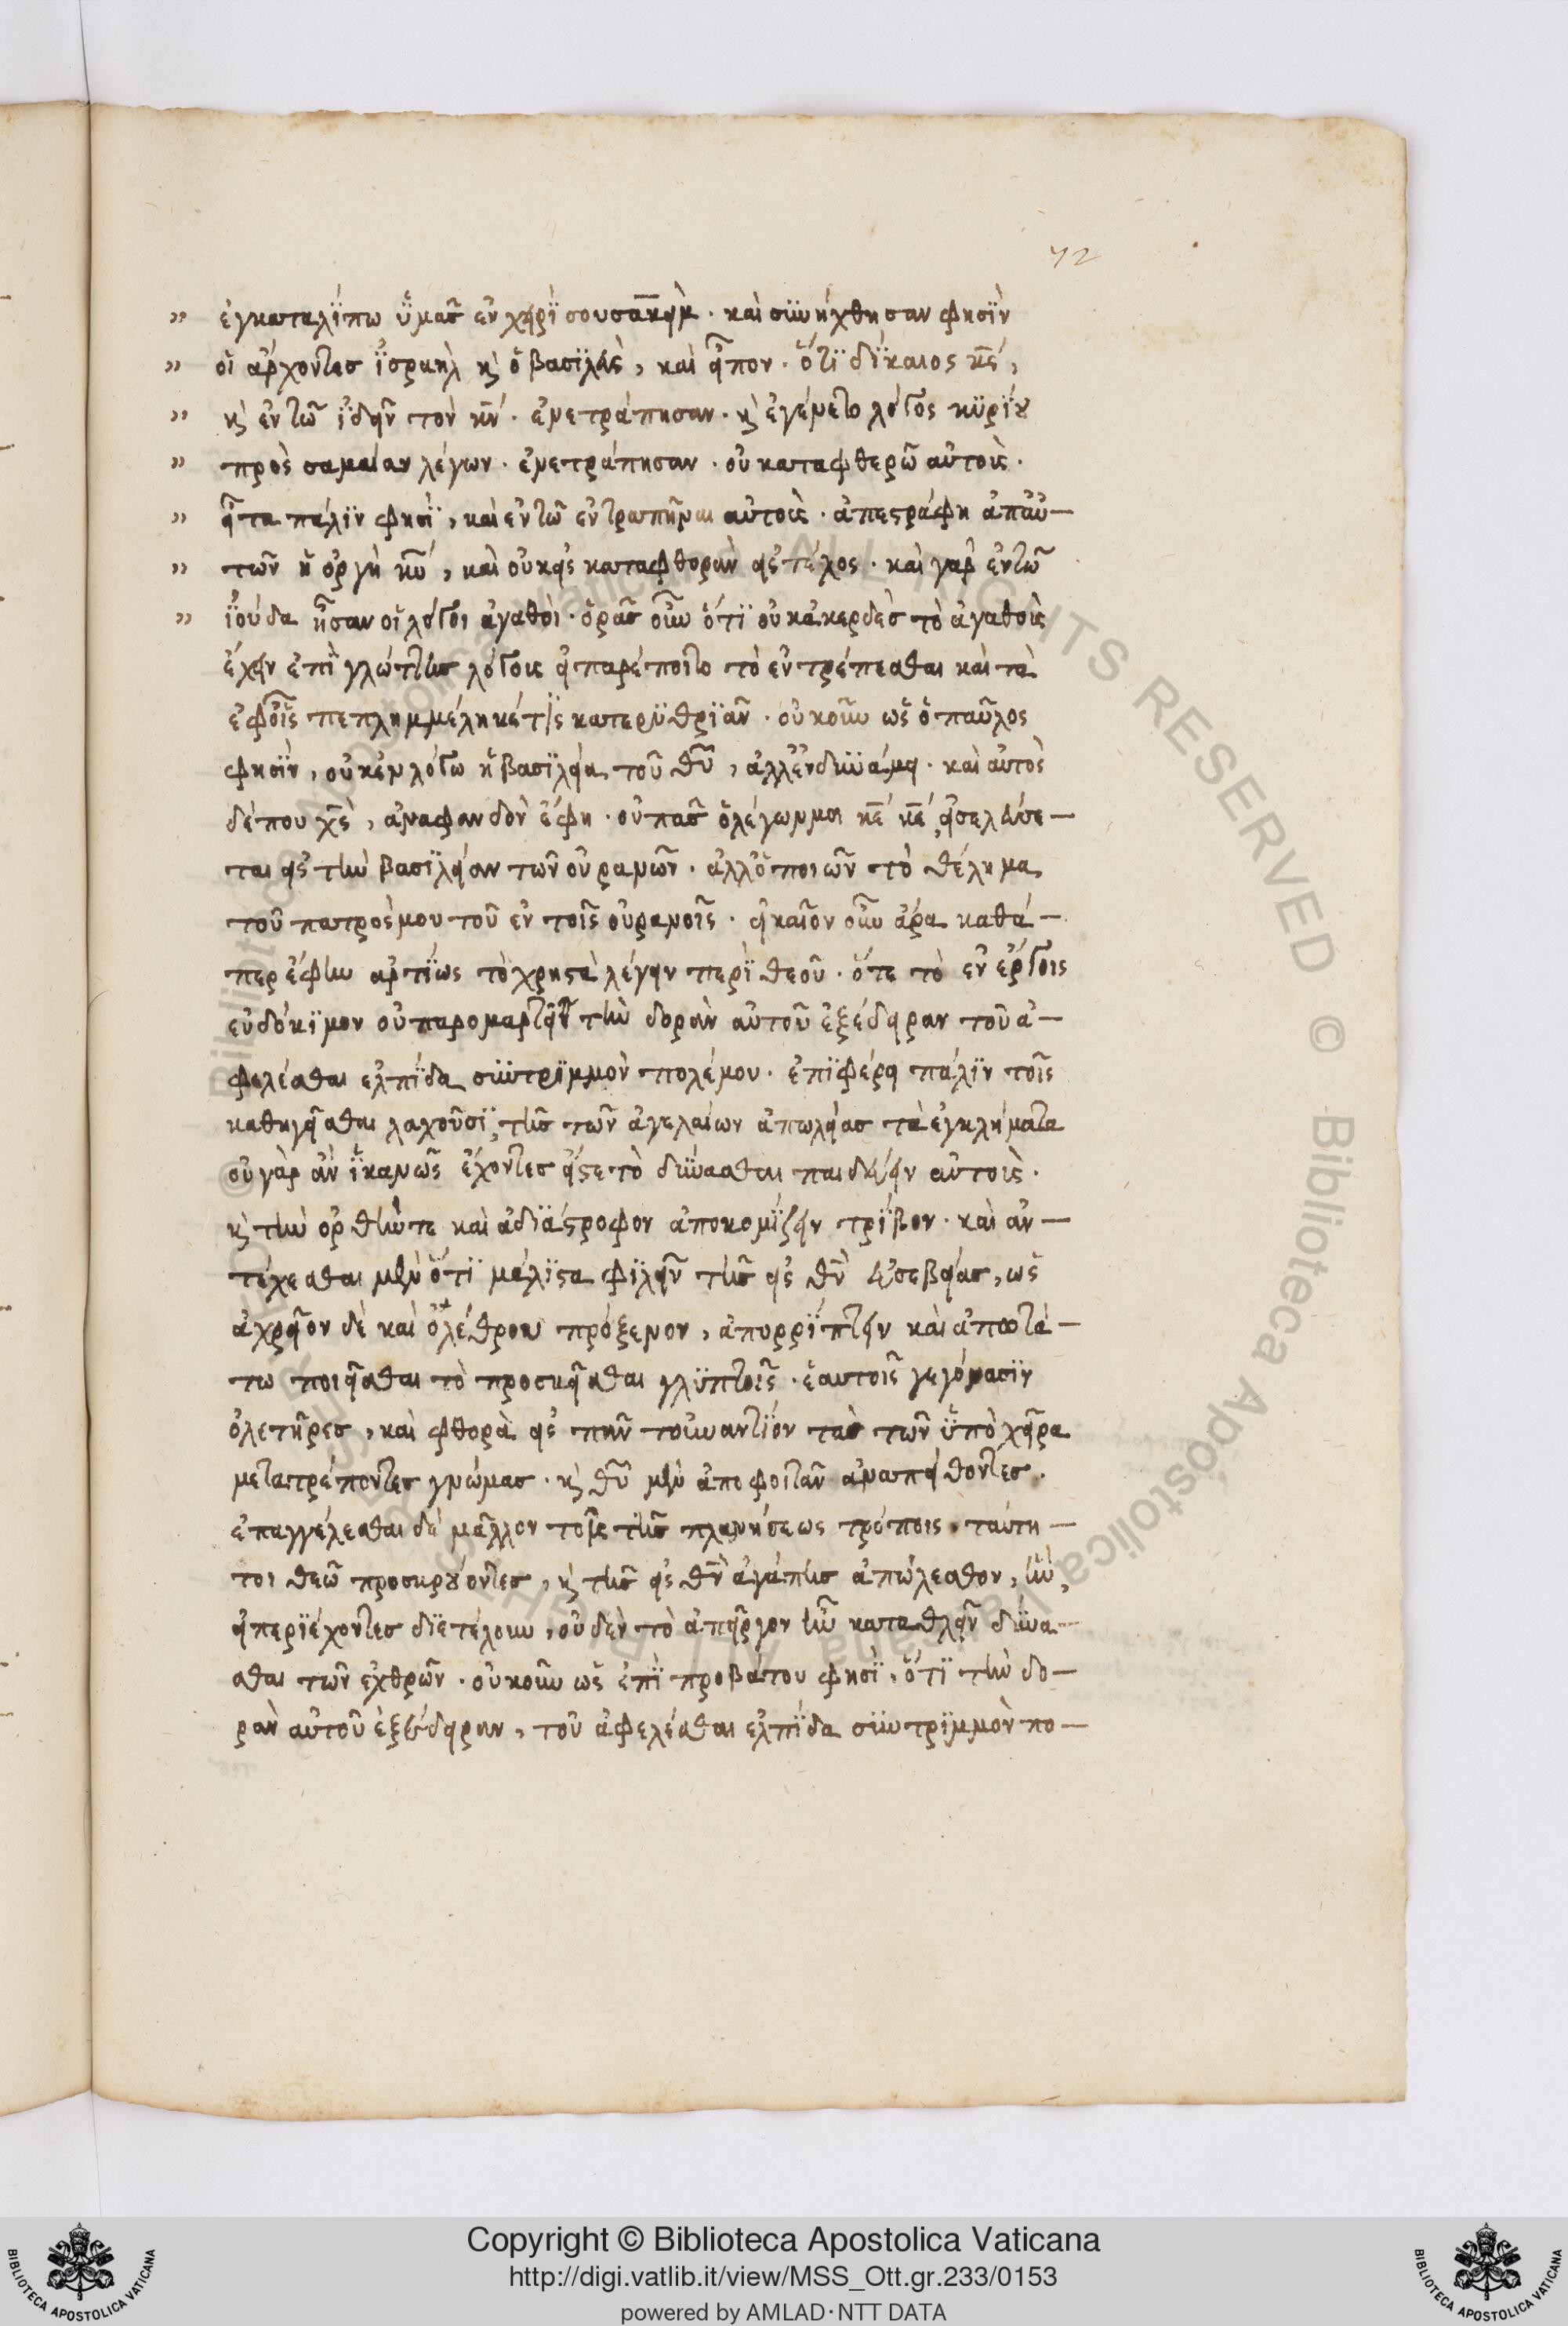 72
” ἐγκαταλίπω ὑμᾶς ἐν χειρὶ σουσακεὶμ · καὶ συνήχθησαν φησὶν
” οἱ ἄρχοντες ἰσραὴλ κ̀ ὁ βασιλεὺς, καὶ εἶπον · ὅτι δίκαιος κ̅ς̅,
” κ̀ ἐν τῶ ἰδεῖν τὸν κ̅ν̅ · ἐνετράπησαν · κ̀ ἐγένετο λόγος κυρίου
” πρὸς σαμαίαν λέγων · ἐνετράπησαν · οὐ καταφθερῶ αὐτοὺς ·
” εἶτα πάλιν φησὶ, καὶ ἐν τῶ ἐντραπῆναι αὐτοὺς · ἀπεστράφη ἀπ' αὐ-
” τῶν ἡ ὀργὴ κ̅υ̅, καὶ οὐκ εἰς καταφθορὰν εἰς τέλος · καὶ γὰρ ἐν τῶ
” ἰούδα ἦσαν οἱ λόγοι ἀγαθοὶ · ὁρᾶς οὖν ὅτι οὐκ ἀκερδὲς τὸ ἀγαθοὺς
ἔχειν ἐπὶ γλώττης λόγους εἰ παρέποιτο τὸ ἐντρέπεσθαι καὶ τὰ
ἐφ' οἷς πεπλημμέληκέ τις κατερυθριᾶν · οὐκοῦν ὡς ὁ παῦλος
φησὶν, οὐκ ἐν λόγω ἡ βασιλεία τοῦ θ̅υ̅, ἀλλ' ἐν δυνάμει · καὶ αὐτὸς
δέ που χ̅ς̅, ἀναφανδὸν ἔφη · οὐ πᾶς ὁ λέγων μοι κ̅ε̅ κ̅ε̅, εἰσελεύσε-
ται εἰς τὴν βασιλείαν τῶν οὐρανῶν · ἀλλ' ὁ ποιῶν τὸ θέλημα
τοῦ πατρός μου τοῦ ἐν τοῖς οὐρανοῖς · εἰκαῖον οὖν ἄρα καθά-
περ ἔφην ἀρτίως τὸ χρηστὰ λέγειν περὶ θεοῦ · ὅτε τὸ ἐν ἔργοις
εὐδόκιμον οὐ παρομαρτεῖν τὴν δορὰν αὐτοῦ ἐξέδειραν τοῦ ἀ-
φελέσθαι ἐλπίδα συντριμμὸν πολέμου · ἐπιφέρει πάλιν τοῖς
καθηγεῖσθαι λαχοῦσι, τῆς τῶν ἀγελαίων ἀπωλείας τὰ ἐγκλήματα
οὐ γὰρ ἂν ἱκανῶς ἔχοντες εἴς τε τὸ δύνασθαι παιδεύειν αὐτοὺς ·
κ̀ τὴν ὀρθήν τε καὶ ἀδιάστροφον ἀποκομίζειν τρίβον · καὶ ἀν-
τέχεσθαι μὲν ὅτι μάλιστα φιλεῖν τῆς εἰς θ̅ν̅ εὐσεβείας, ὡς
ἀχρεῖον δὲ καὶ ὀλέθρου πρόξενον, ἀπορρίπτειν καὶ ἀπωτά-
τω ποιεῖσθαι τὸ προσκεῖσθαι γλυπτοῖς · ἑαυτοῖς γεγόνασιν
ὀλετῆρες, καὶ φθορὰ εἰς πᾶν τοὐναντίον τὰς τῶν ὑπὸ χεῖρα
μετατρέποντες γνώμας · κ̀ θ̅υ̅ μὲν ἀποφοιτᾶν ἀναπείθοντες ·
ἐπαγγέλεσθαι δὲ μᾶλλον τοῖς τῆς πλανήσεως τρόποις · ταύτη-
τοι θεῶ προσκρούοντες, κ̀ τῆς εἰς θ̅ν̅ ἀγάπης ἀπώλεσθον, ἣν,
εἰ περιέχοντες διετέλουν, οὐδὲν τὸ ἀπεῖργον ἦν καταθλεῖν δύνα-
σθαι τῶν ἐχθρῶν · οὐκοῦν ὡς ἐπὶ προβάτου φησὶ, ὅτι τὴν δο-
ρὰν αὐτοῦ ἐξέδειραν, τοῦ ἀφελέσθαι ἐλπίδα συντριμμὸν πο-
© Biblioteca Apostolica Vaticana ALL RIGHTS RESERVED
Copyright © Biblioteca Apostolica Vaticana
http://digi.vatlib.it/view/MSS_Ott.gr.233/0153
powered by AMLAD·NTT DATA
BIBLIOTECA APOSTOLICA VATICANA
BIBLIOTECA APOSTOLICA VATICANA